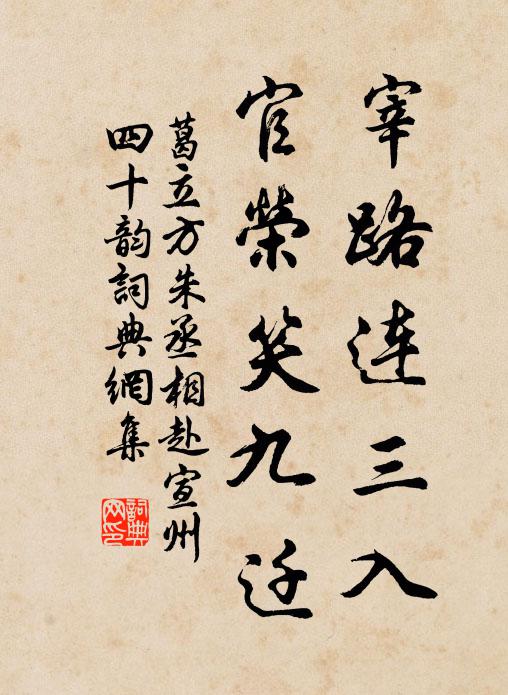 宰路连三入
官荣笑九迁
葛立方朱丞相赴宣州
四十韵词典网集
詞典
网印